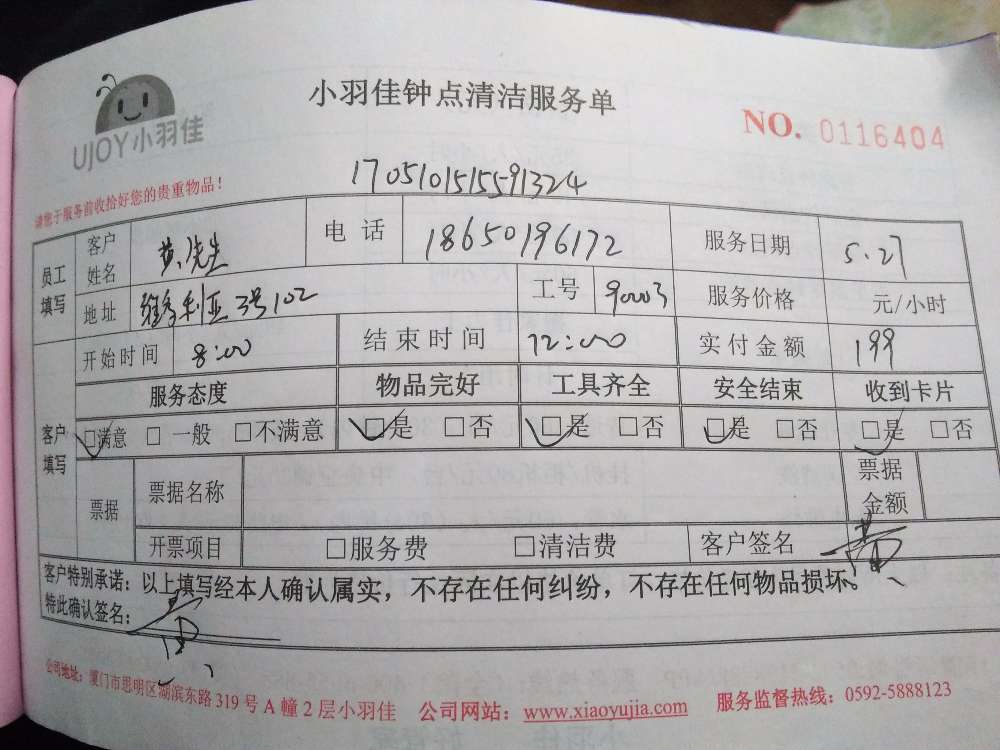 UJOY小羽佳
小羽佳钟点清洁服务单
NO. 0116404
请您于服务前收拾好您的贵重物品！
1705101515591324
员工填写 客户姓名 黄先生 电话 18650196172 服务日期 5.27
地址 维多利亚3号102 工号 90003 服务价格 元/小时
客户填写 开始时间 8:00 结束时间 12:00 实付金额 199
服务态度 物品完好 工具齐全 安全结束 收到卡片
□满意 □一般 □不满意 □是 □否 □是 □否 □是 □否 □是 □否
票据 票据名称 票据金额
开票项目 □服务费 □清洁费 客户签名 黄
客户特别承诺：以上填写经本人确认属实，不存在任何纠纷，不存在任何物品损坏。
特此确认签名： 黄
公司地址：厦门市思明区湖滨东路319号A幢2层小羽佳 公司网站：www.xiaoyujia.com 服务监督热线：0592-5888123